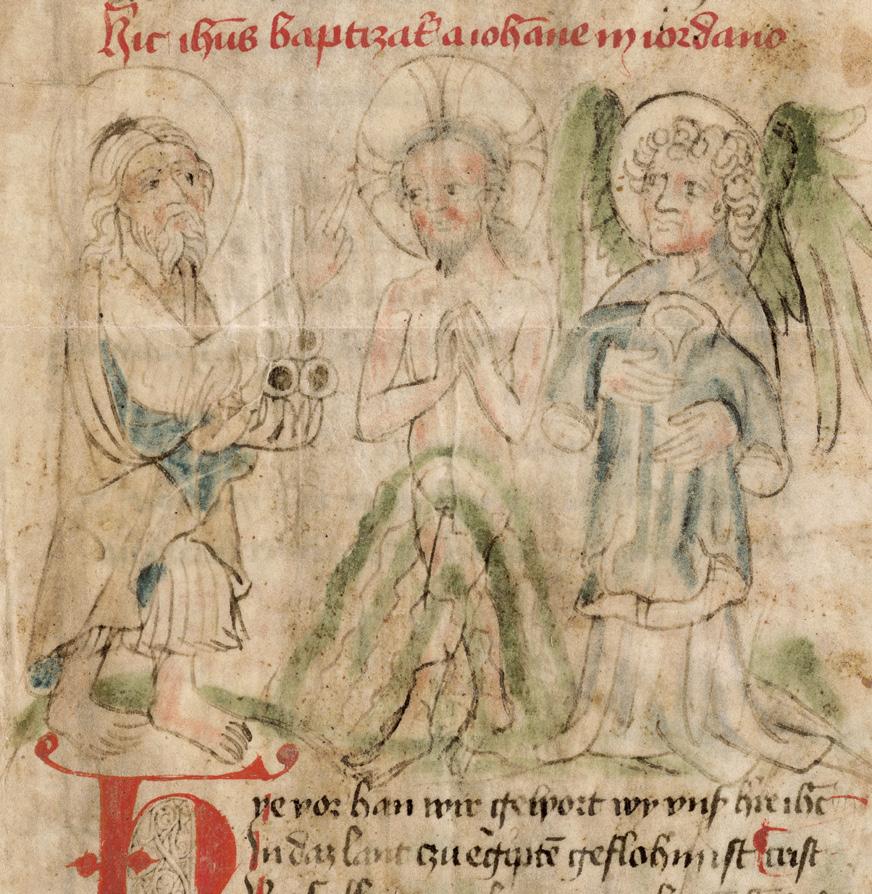 Hic ihūs baptizat̄ a iohāne in iordano
Hye vor han wir gehort wy vnſ hre ihc
In daz lant czu egiptē geflohin iſt criſt